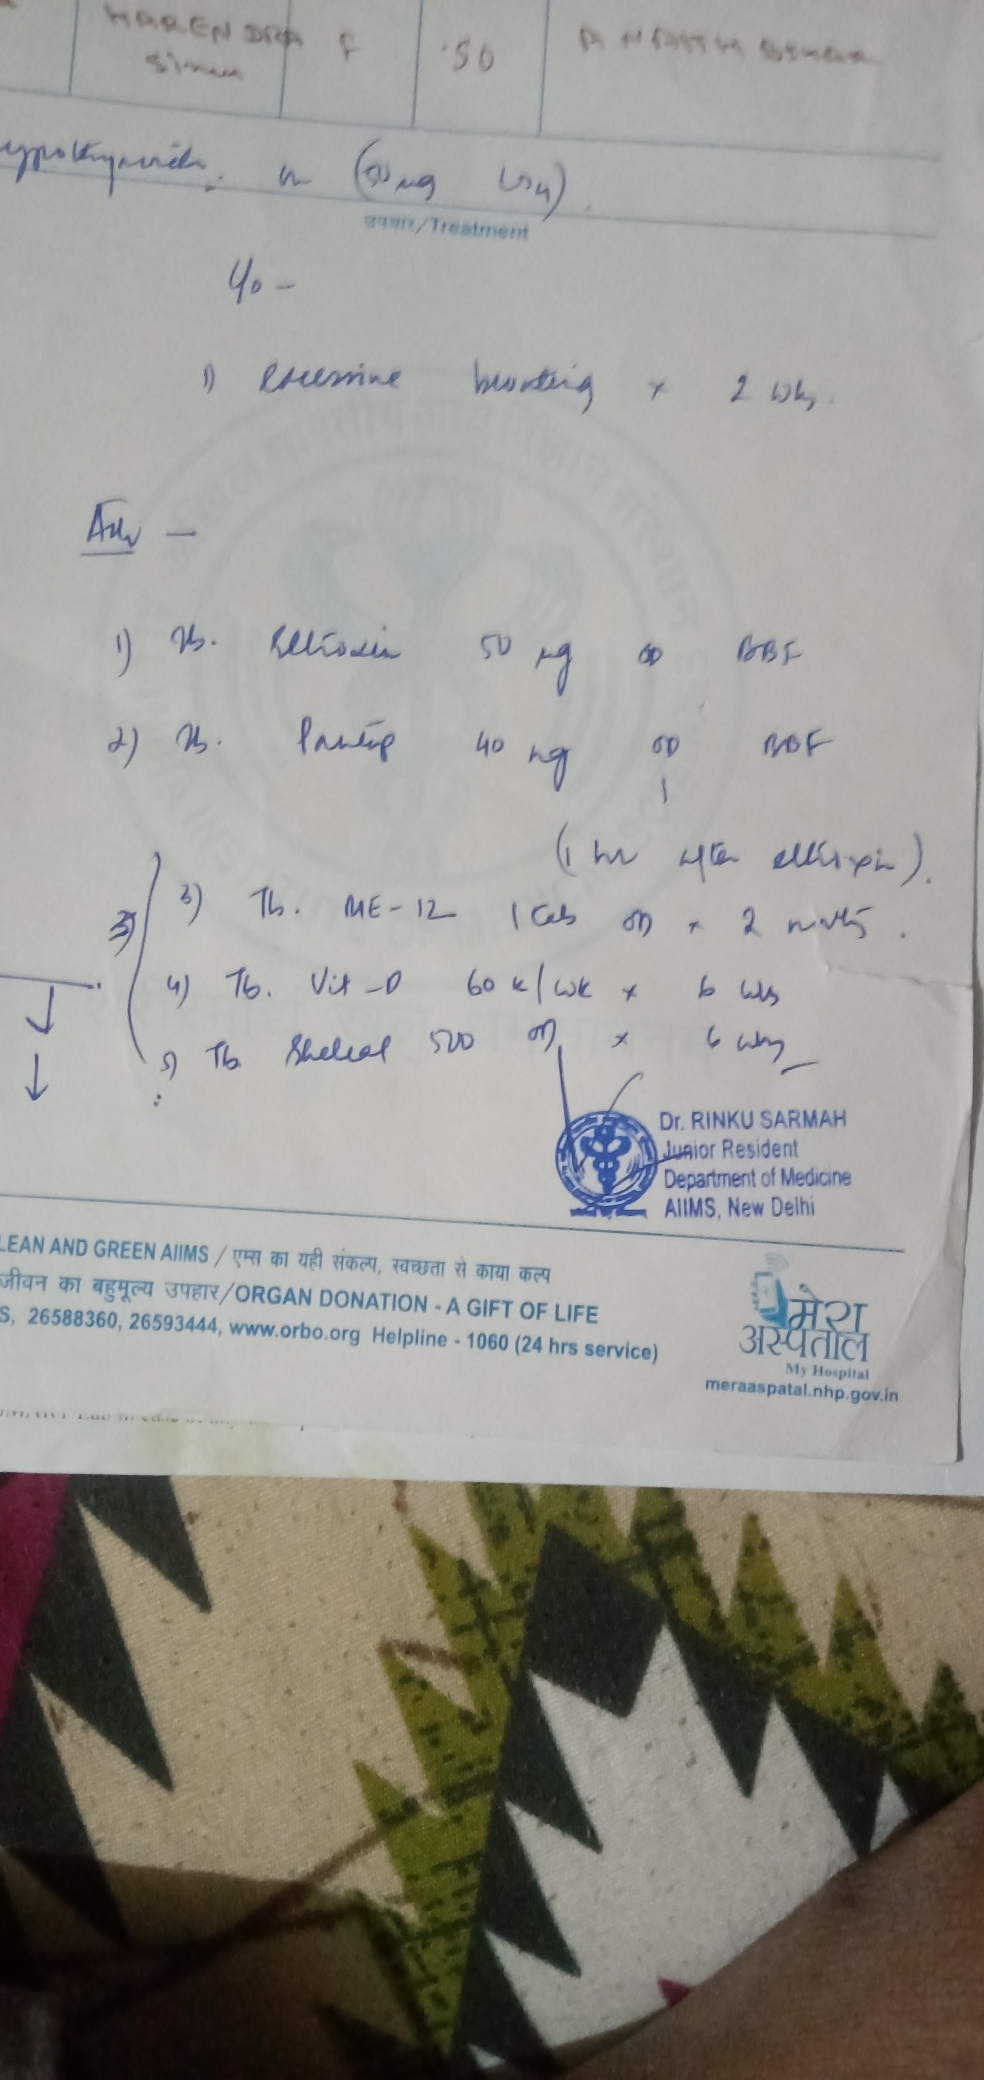 HARENDRA F 50
Singh
(50 µg
उपचार/Treatment
1) excessive × 2 wks.
Adv —
1) Tb. Eltroxin 50 µg OD BBF
2) Tb. Pantop 40 mg OD BBF
(1 hr after eltroxin).
3) Tb. ME-12 1 tab OD × 2 mnths.
4) Tb. Vit-D 60 K/wk × 6 wks
5) Tb Shelcal 500 OD × 6 wks
Dr. RINKU SARMAH
Junior Resident
Department of Medicine
AIIMS, New Delhi
LEAN AND GREEN AIIMS / एम्स का यही संकल्प, स्वच्छता से काया कल्प
जीवन का बहुमूल्य उपहार/ORGAN DONATION - A GIFT OF LIFE
S, 26588360, 26593444, www.orbo.org Helpline - 1060 (24 hrs service)
मेरा
अस्पताल
My Hospital
meraaspatal.nhp.gov.in